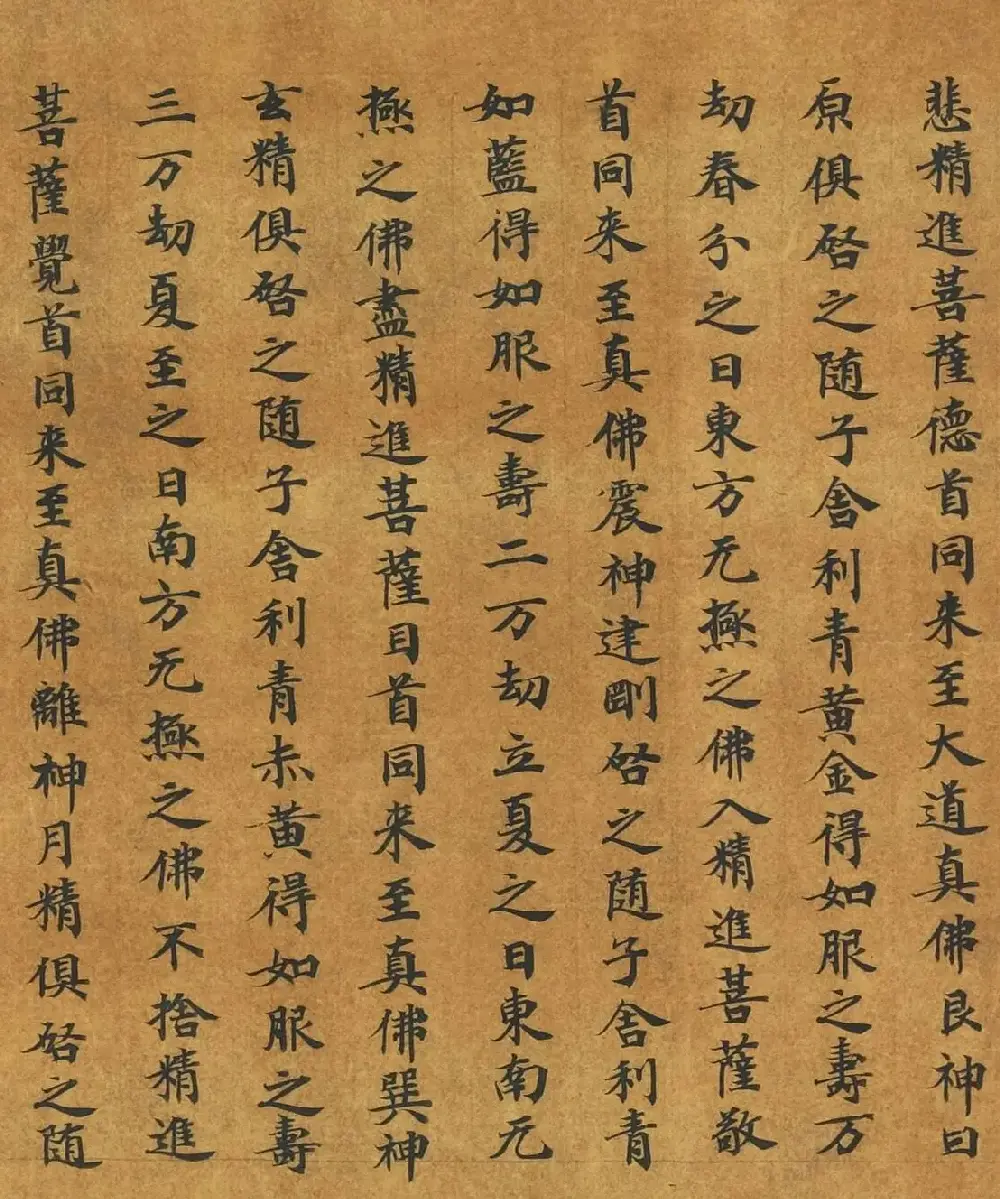 悲精進菩薩德首同来至大道真佛艮神曰
原俱啓之随子舍利青黄金得如服之壽万
劫春分之日東方无極之佛入精進菩薩敬
首同来至真佛震神建剛啓之随子舍利青
如藍得如服之壽二万劫立夏之日東南无
極之佛盡精進菩薩目首同来至真佛巽神
玄精俱啓之随子舍利青赤黄得如服之壽
三万劫夏至之日南方无極之佛不捨精進
菩薩覺首同来至真佛離神月精俱啓之随